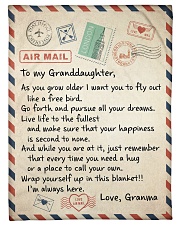 AIR MAIL
To my Granddaughter,
As you grow older I want you to fly out
like a free bird.
Go forth and pursue all your dreams.
Live life to the fullest
and make sure that your happiness
is second to none.
And while you are at it, just remember
that every time you need a hug
or a place to call your own.
Wrap yourself up in this blanket!!
I'm always here.
Love, Granma